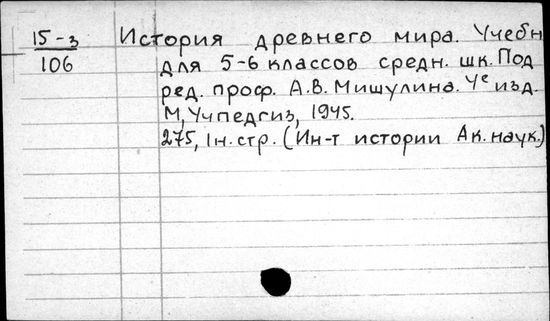 15-з История древнего мира. Учебн
106 для 5-6 классов средн. шк. Под
ред. проф. А.В. Мишулина. 4е изд.
М, Учпедгиз, 1945.
275, 1н. стр. (Ин-т истории Ак. наук.)